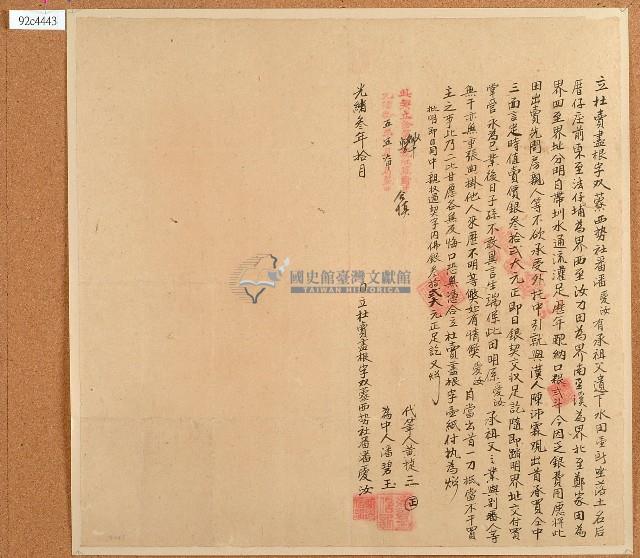 92c4443
立杜賣盡根字双藔西勢社番潘愛汝有承祖父遺下水田壹所坐落土名后
厝仔庄前東至法仔埔為界西至汝力田為界南至溪為界北至鄭家田為
界四至界址分明白帶圳水通流灌足歷年配納口糧弍斗今因乏銀費用愿將此
田出賣先問房親人等不欲承受外托中引就與漢人陳沛霖現出首承買仝中
三面言定時值賣價銀叁拾弍大元正即日銀契交收足訖隨即踏明界址交付買
掌管永為己業後日子孫不敢異言生端保此田明係愛汝承祖父之業與別番人等
無干亦無重張典掛他人來歷不明等弊如有情弊愛汝自當出首一力抵當不干買
主之事此乃二比甘愿各無反悔口恐無憑合立杜賣盡根字壹紙付执為炤
批明即日同中親收過契字内佛銀叁拾弍大元正足訖又炤
代筆人黃
為中人潘碧玉
光緒叁年拾月 日立杜賣盡根字双藔西勢社番潘愛汝
國史館臺灣文獻館
TAIWAN HISTORICA